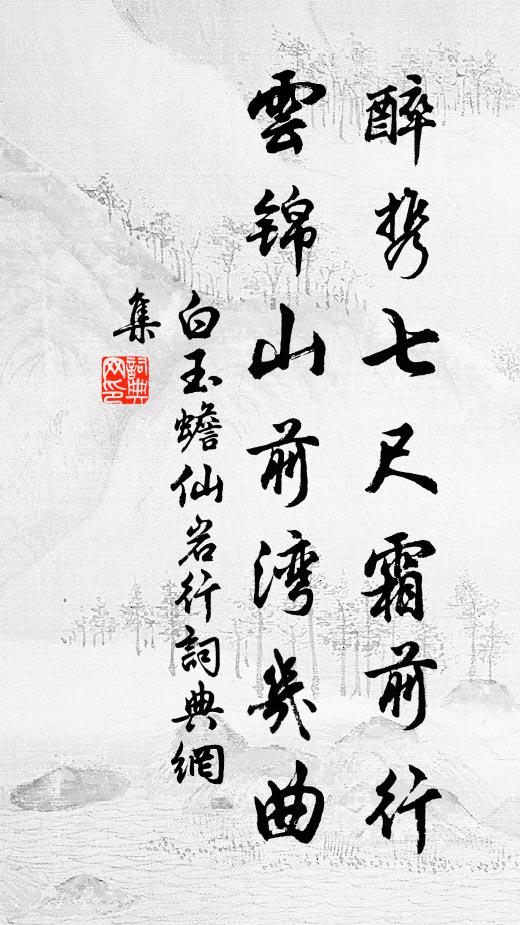 醉携七尺霜前行
雲錦山前湾幾曲
白玉蟾仙岩行詞典網
集
詞典网印